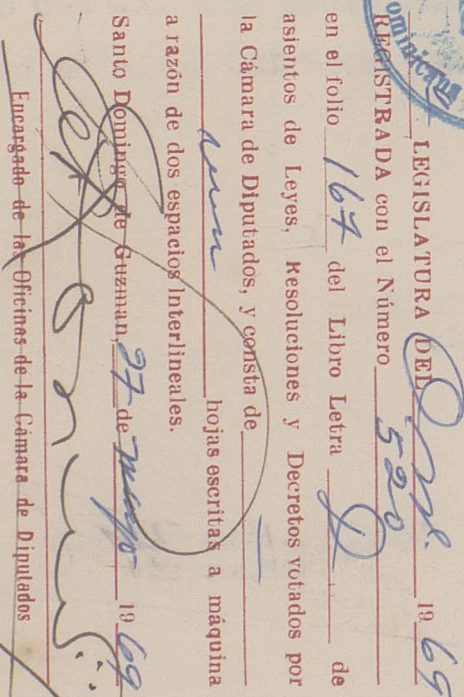 ominicana
LEGISLATURA DEL Ord. 1969
REGISTRADA con el Número 520
en el folio 167 del Libro Letra D de
asientos de Leyes, Resoluciones y Decretos votados por
la Cámara de Diputados, y consta de
hojas escritas a máquina
a razón de dos espacios interlineales.
Santo Domingo de Guzmán, 27 de mayo 1969
Encargado de las Oficinas de la Cámara de Diputados